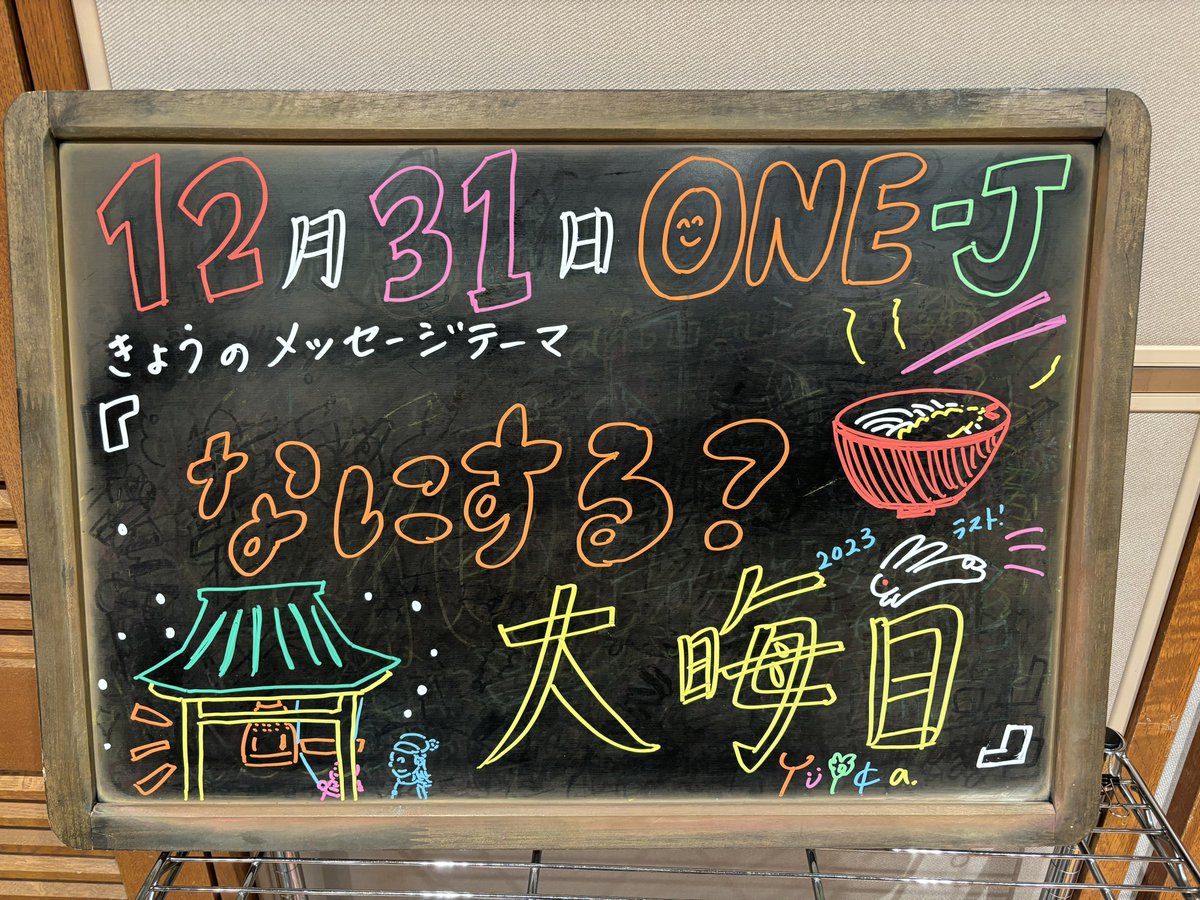 12月31日 ONE-J
きょうのメッセージテーマ
『なにする?
2023 ラスト!
大晦日』
Yuka.